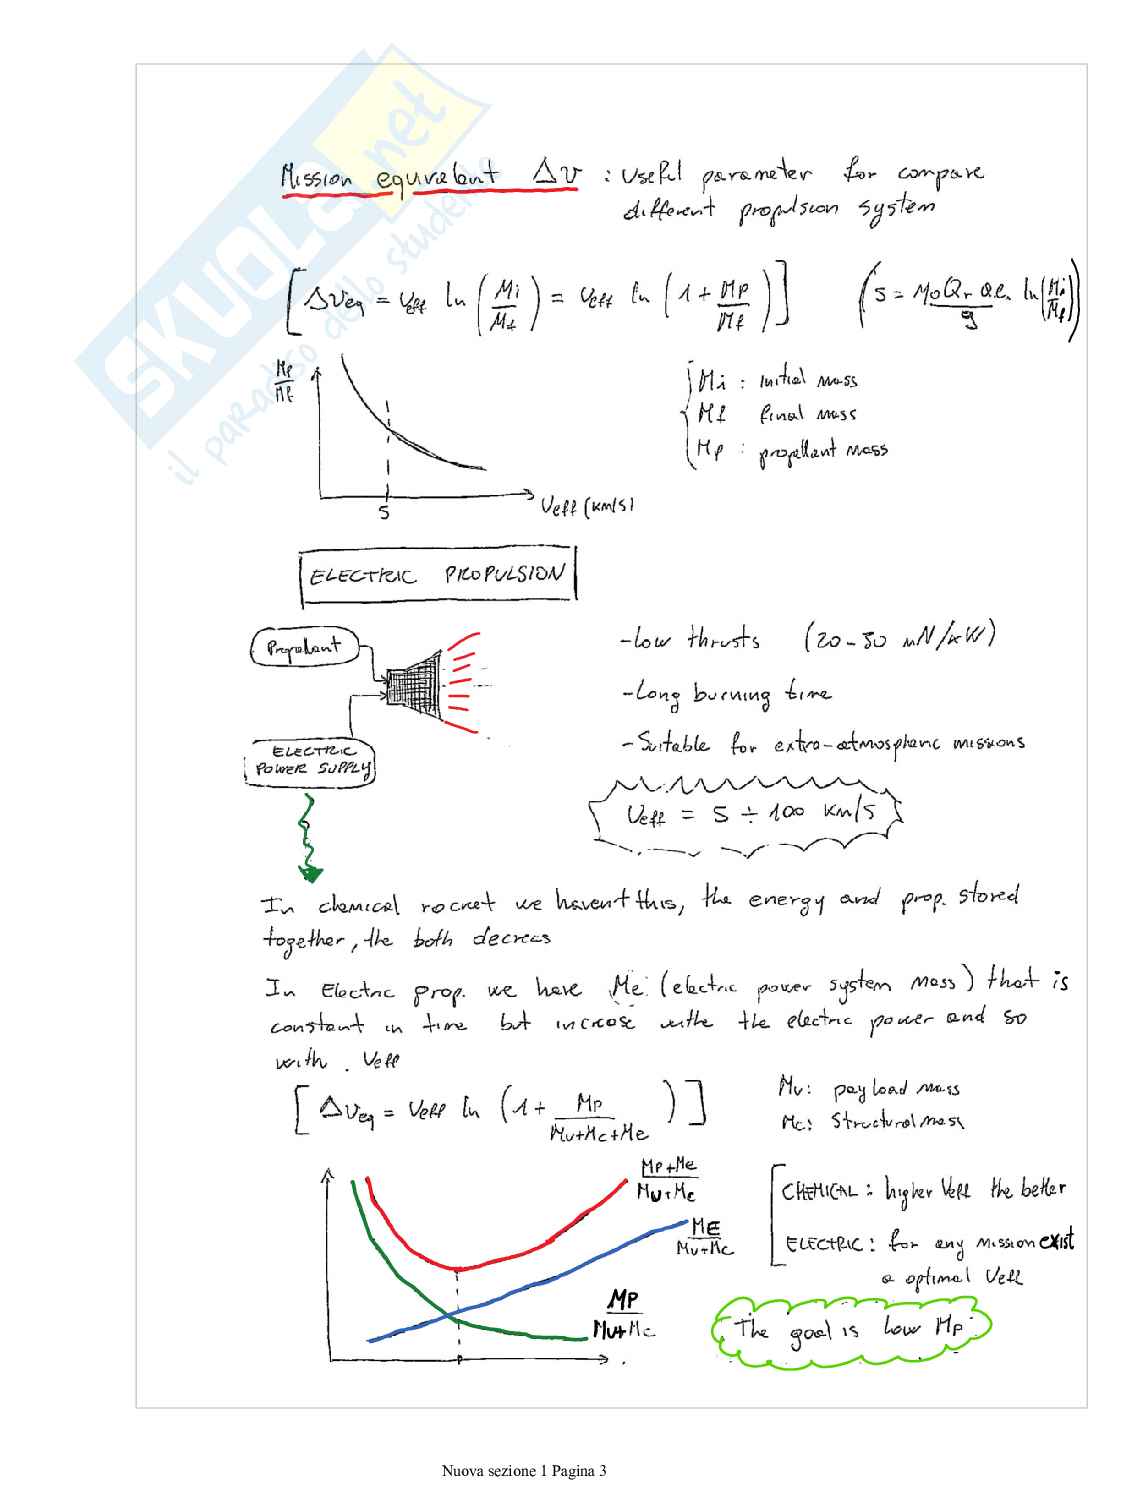 SKUOLA.net
il paradiso dello studente
Mission equivalent Δv : useful parameter for compare
different propulsion system
[ΔVeq = Veff ln (Mi/Mf) = Veff ln (1 + Mp/Mf)]
(S = M₀Qr a.e. ln(Mi/Mf) / g)
Mp/Mf
5
Veff (km/s)
Mi : initial mass
Mf final mass
Mp : propellant mass
ELECTRIC PROPULSION
Propellant
ELECTRIC
POWER SUPPLY
-low thrusts (20-50 mN/kW)
-Long burning time
-Suitable for extra-atmospheric missions
Veff = 5 ÷ 100 km/s
In chemical rocket we havent this, the energy and prop. stored
together, the both decreas
In Electric prop. we have Me (electric power system mass) that is
constant in time but increase withe the electric power and so
with . Veff
[ΔVeq = Veff ln (1 + Mp/(Mu+Mc+Me))]
Mu: payload mass
Mc: Structural mass
Mp+Me/Mu+Mc
ME/Mu+Mc
Mp/Mu+Mc
CHEMICAL : higher Veff the better
ELECTRIC : for any mission exist
a optimal Veff
The goal is low Mp
Nuova sezione 1 Pagina 3